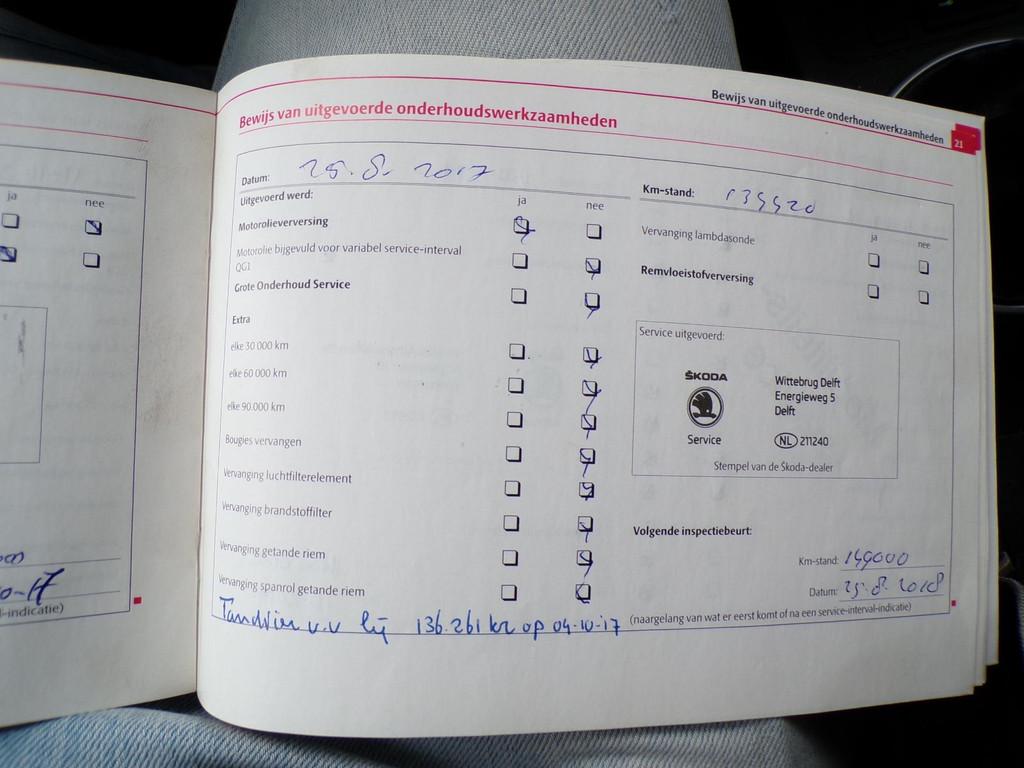 Bewijs van uitgevoerde onderhoudswerkzaamheden
21
Bewijs van uitgevoerde onderhoudswerkzaamheden
ja nee
Datum: 25.8. 2017
Uitgevoerd werd: ja nee
Motorolieverversing
Motorolie bijgevuld voor variabel service-interval
QG1
Grote Onderhoud Service
Extra
elke 30 000 km
elke 60 000 km
elke 90.000 km
Bougies vervangen
Vervanging luchtfilterelement
Vervanging brandstoffilter
Vervanging getande riem
Vervanging spanrol getande riem
Tandriem v.v bij 136.261 km op 04-10-17
Km-stand:
ja nee
Vervanging lambdasonde
Remvloeistofverversing
Service uitgevoerd:
ŠKODA
Service
Wittebrug Delft
Energieweg 5
Delft
NL 211240
Stempel van de Škoda-dealer
Volgende inspectiebeurt:
Km-stand: 149000
Datum: 25.8.2018
(naargelang van wat er eerst komt of na een service-interval-indicatie)
l-indicatie)